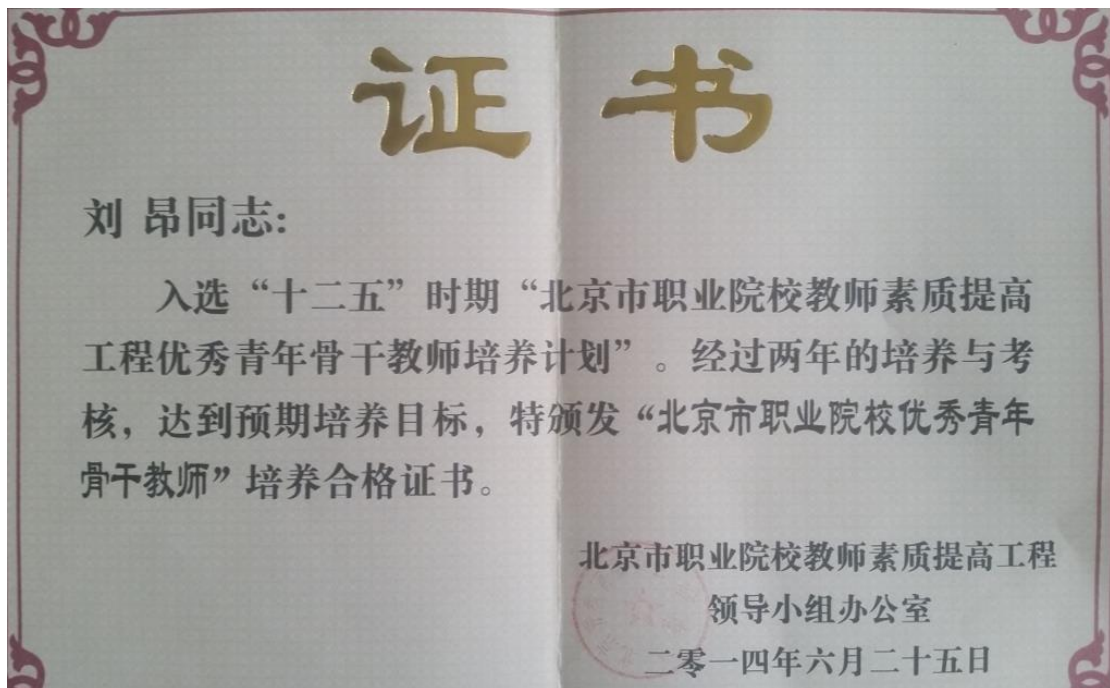 证书
刘 昂同志:
入选“十二五”时期“北京市职业院校教师素质提高
工程优秀青年骨干教师培养计划”。经过两年的培养与考
核，达到预期培养目标，特颁发“北京市职业院校优秀青年
骨干教师”培养合格证书。
北京市职业院校教师素质提高工程
领导小组办公室
二零一四年六月二十五日